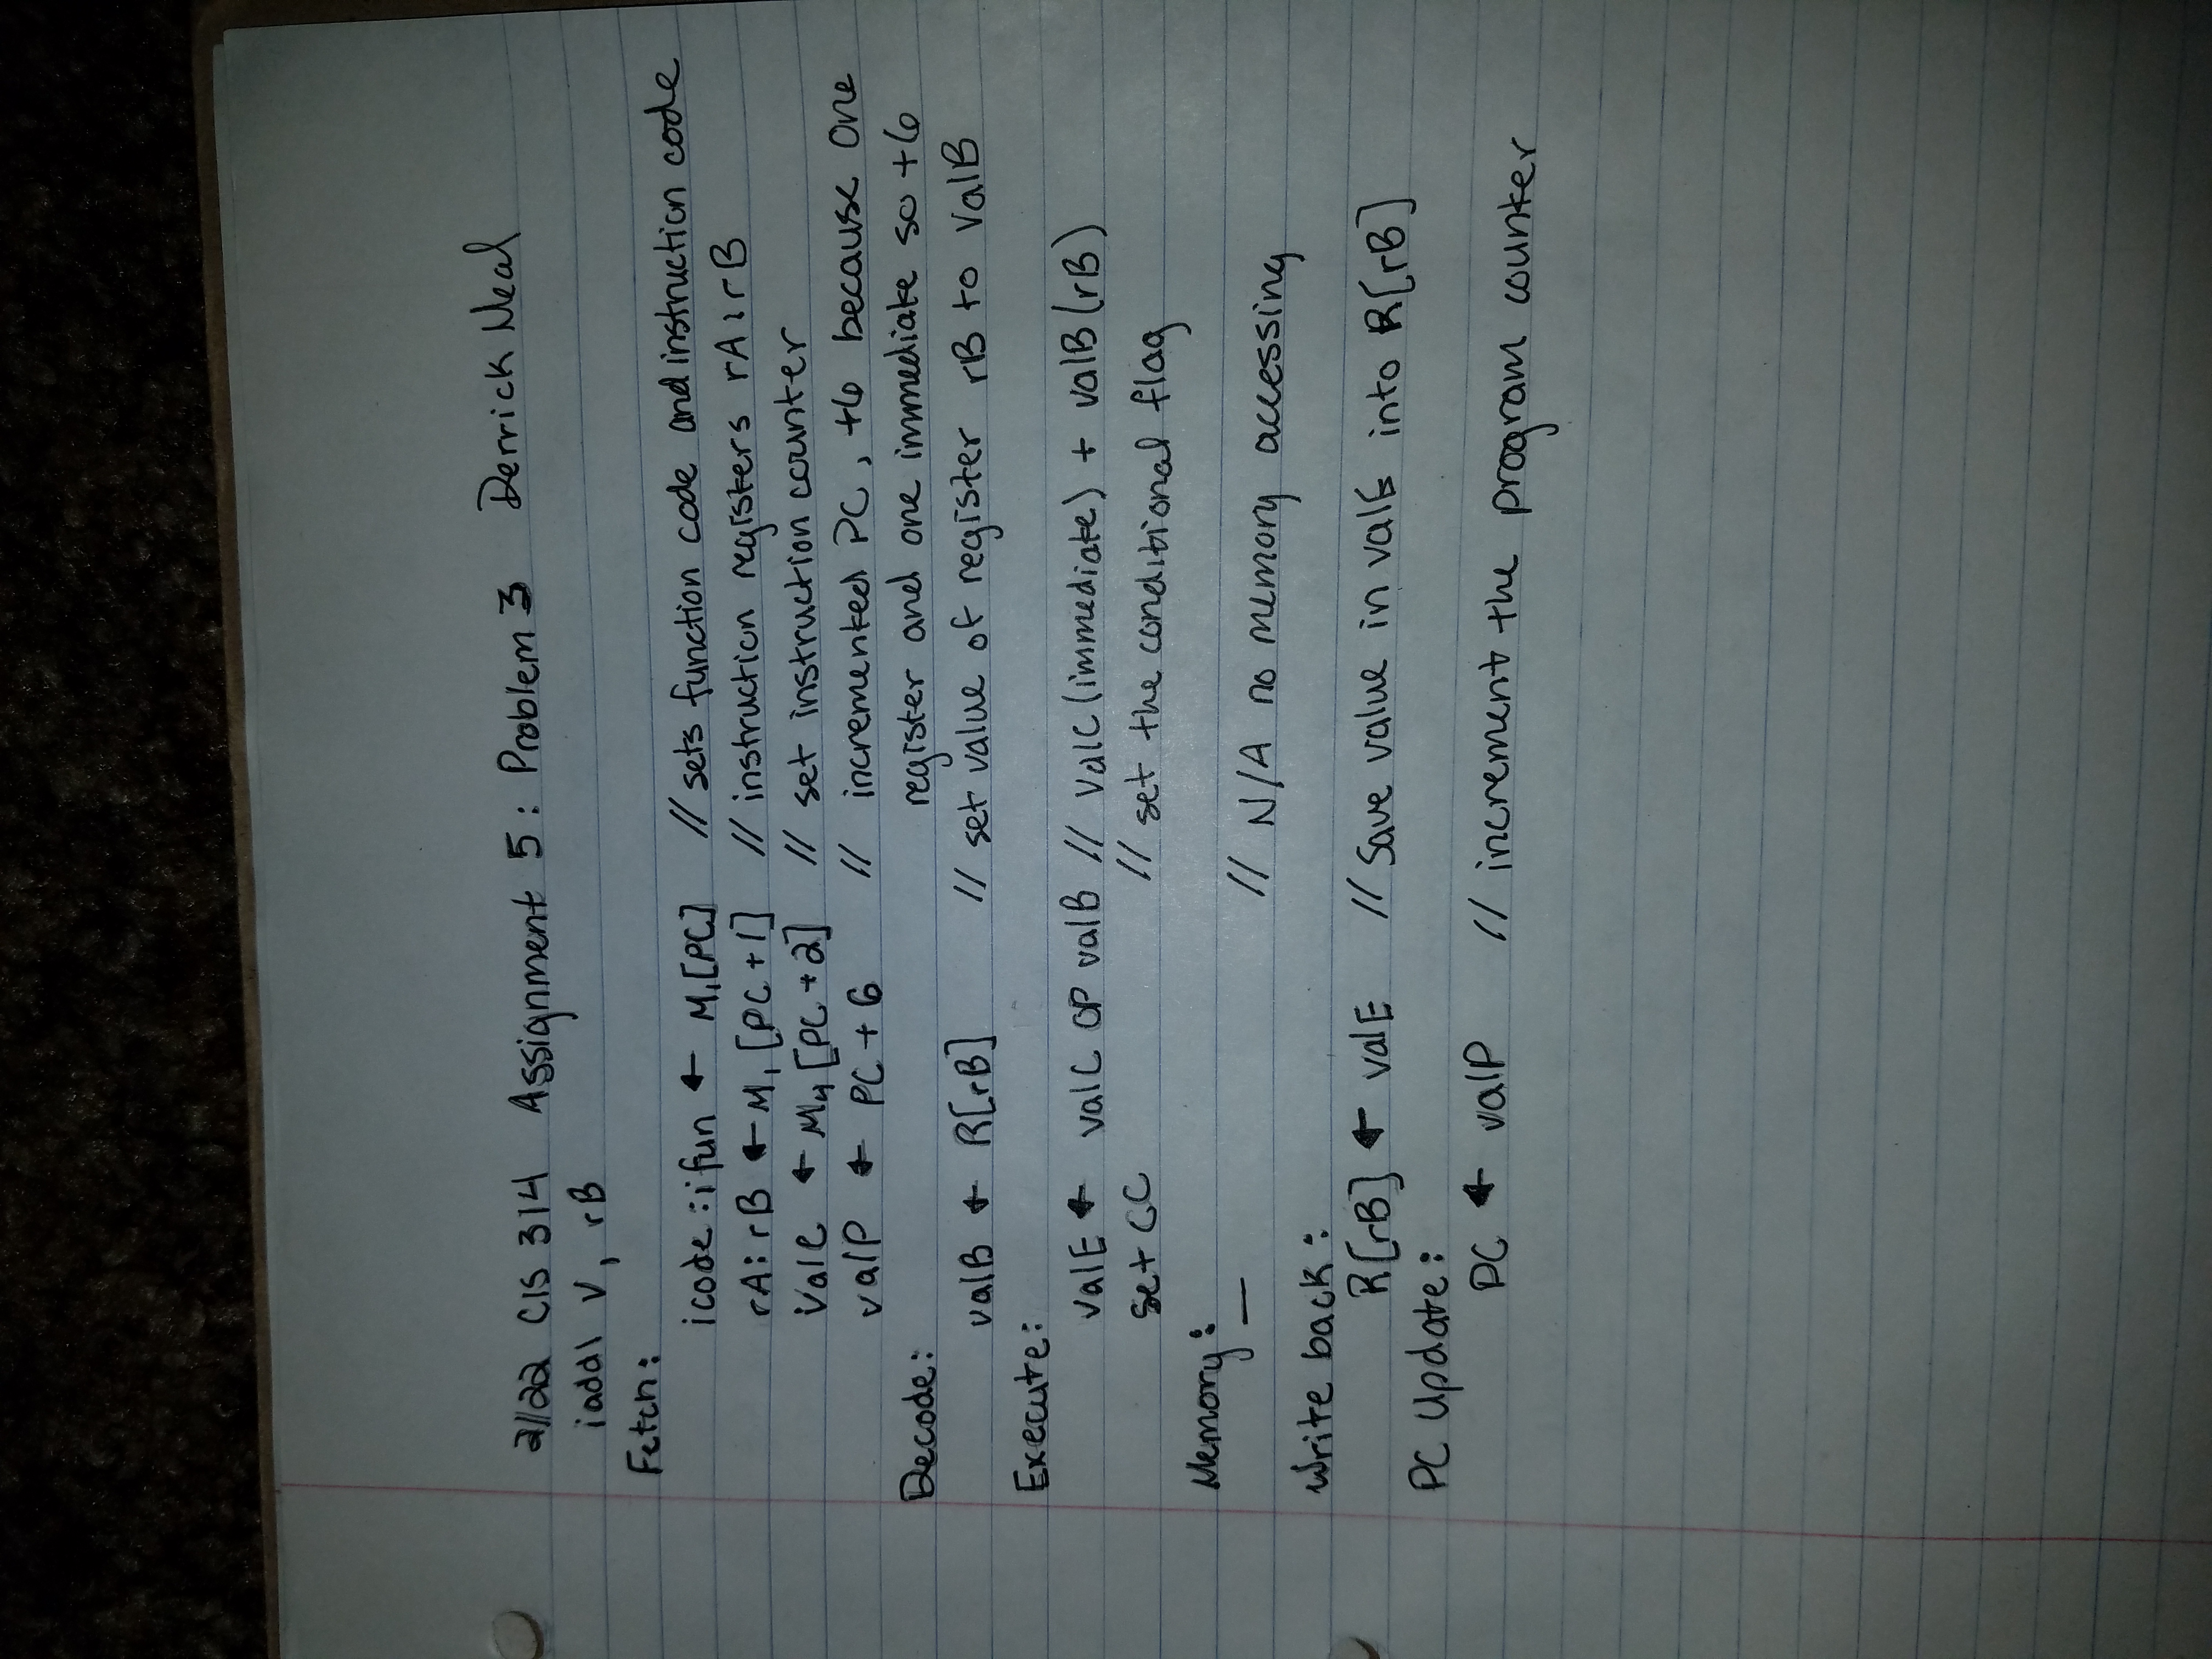 2/22 CIS 314 Assignment 5: Problem 3 Derrick Neal
iaddl V, rB
Fetch:
icode:ifun ← M₁[PC] // sets function code and instruction code
rA:rB ← M₁[PC+1] // instruction registers rA:rB
ValC ← M₄[PC+2] // set instruction counter
valP ← PC+6 // incremented PC, +6 because one
Decode: register and one immediate so +6
valB ← R[rB] // set value of register rB to ValB
Execute:
valE ← valC OP valB // ValC (immediate) + valB (rB)
set CC // set the conditional flag
Memory: —
// N/A no memory accessing
Write back:
R[rB] ← valE // Save value in valE into R[rB]
PC Update:
PC ← valP // increment the program counter